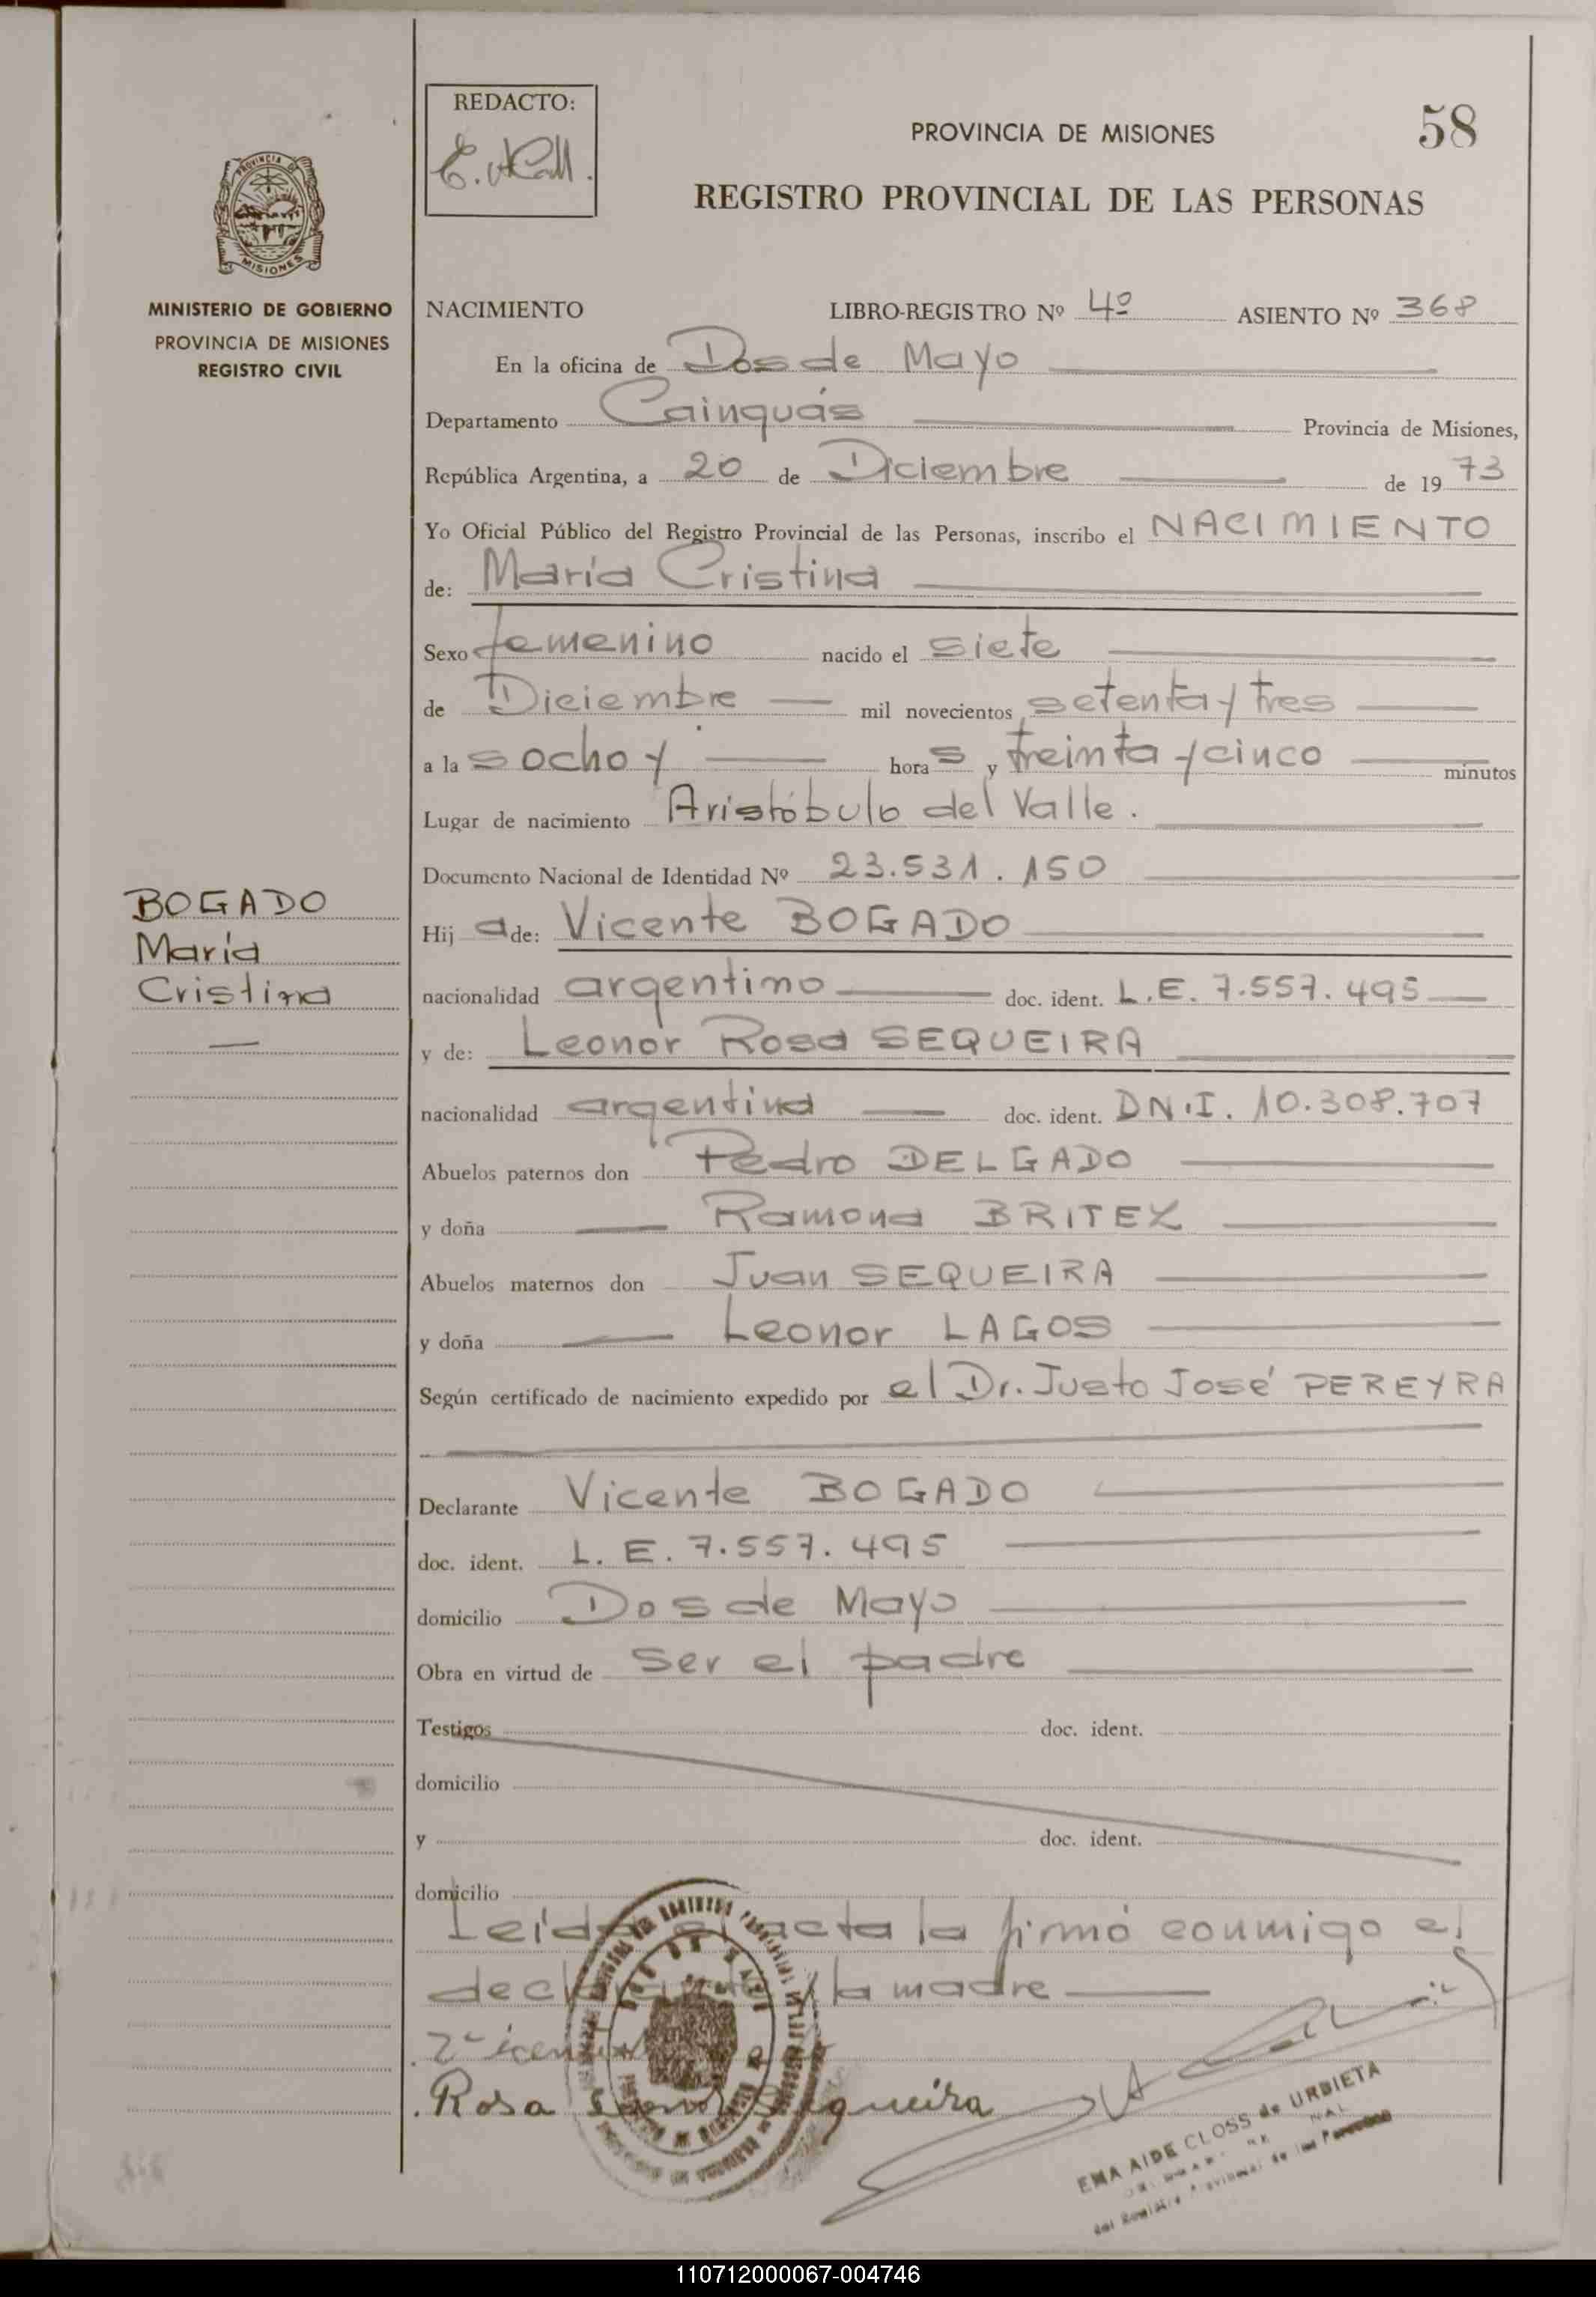 58
REDACTO:
PROVINCIA DE MISIONES
REGISTRO PROVINCIAL DE LAS PERSONAS
PROVINCIA DE
MISIONES
MINISTERIO DE GOBIERNO
PROVINCIA DE MISIONES
REGISTRO CIVIL
NACIMIENTO LIBRO-REGISTRO Nº 4º ASIENTO Nº 368
En la oficina de Dos de Mayo
Departamento Cainguás Provincia de Misiones,
República Argentina, a 20 de Diciembre de 19 73
Yo Oficial Público del Registro Provincial de las Personas, inscribo el NACIMIENTO
de: María Cristina
Sexo femenino nacido el siete
de Diciembre mil novecientos setenta y tres
a la s ocho y hora s y treinta y cinco minutos
Lugar de nacimiento Aristóbulo del Valle.
Documento Nacional de Identidad Nº 23.531.150
BOGADO
María
Cristina
Hij a de: Vicente BOGADO
nacionalidad argentino doc. ident. L.E. 7.557.495
y de: Leonor Rosa SEQUEIRA
nacionalidad argentina doc. ident. DN.I. 10.308.707
Abuelos paternos don Pedro DELGADO
y doña Ramona BRITEZ
Abuelos maternos don Juan SEQUEIRA
y doña Leonor LAGOS
Según certificado de nacimiento expedido por el Dr. Justo José PEREYRA
Declarante Vicente BOGADO
doc. ident. L.E. 7.557.495
domicilio Dos de Mayo
Obra en virtud de ser el padre
Testigos doc. ident.
domicilio
y doc. ident.
domicilio
Leída el acta la firmó conmigo el
declarante y la madre
Rosa Leonor Sequeira
EMA AIDE CLOSS de URBIETA
del Registro Provincial de las Personas
110712000067-004746